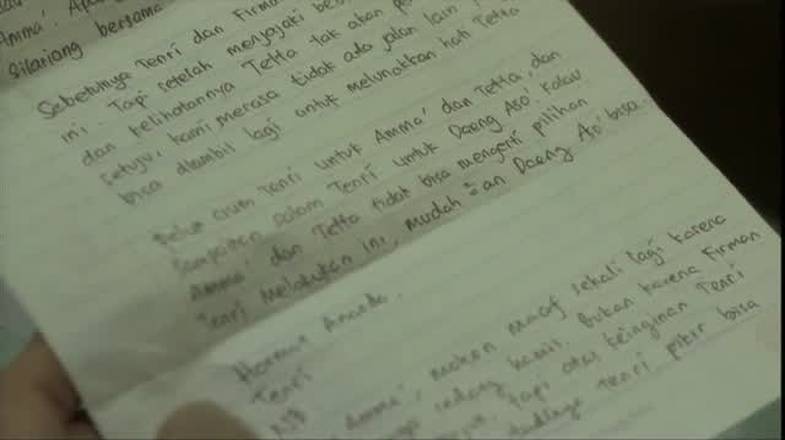 Amma'.
silariang bersama
Sebetulnya Tenri dan Firma
ini. Tapi setelah menjajaki be
dan kelihatannya Tetta tak akan
setuju, kami merasa tidak ada jalan lain
bisa diambil lagi untuk melunakkan hati Tetta
Peluk cium Tenri untuk Amma' dan Tetta, dan
sampaikan salam Tenri untuk Daeng Aso'. Kalau
Amma' dan Tetta tidak bisa mengerti pilihan
Tenri melakukan ini, mudah an Daeng Aso' bisa.
Hormat Ananda,
Tenri
NB
Amma', mohon maaf sekali lagi karena
sedang hamil. Bukan karena Firman
tapi atas keinginan Tenri
Tenri pikir bisa